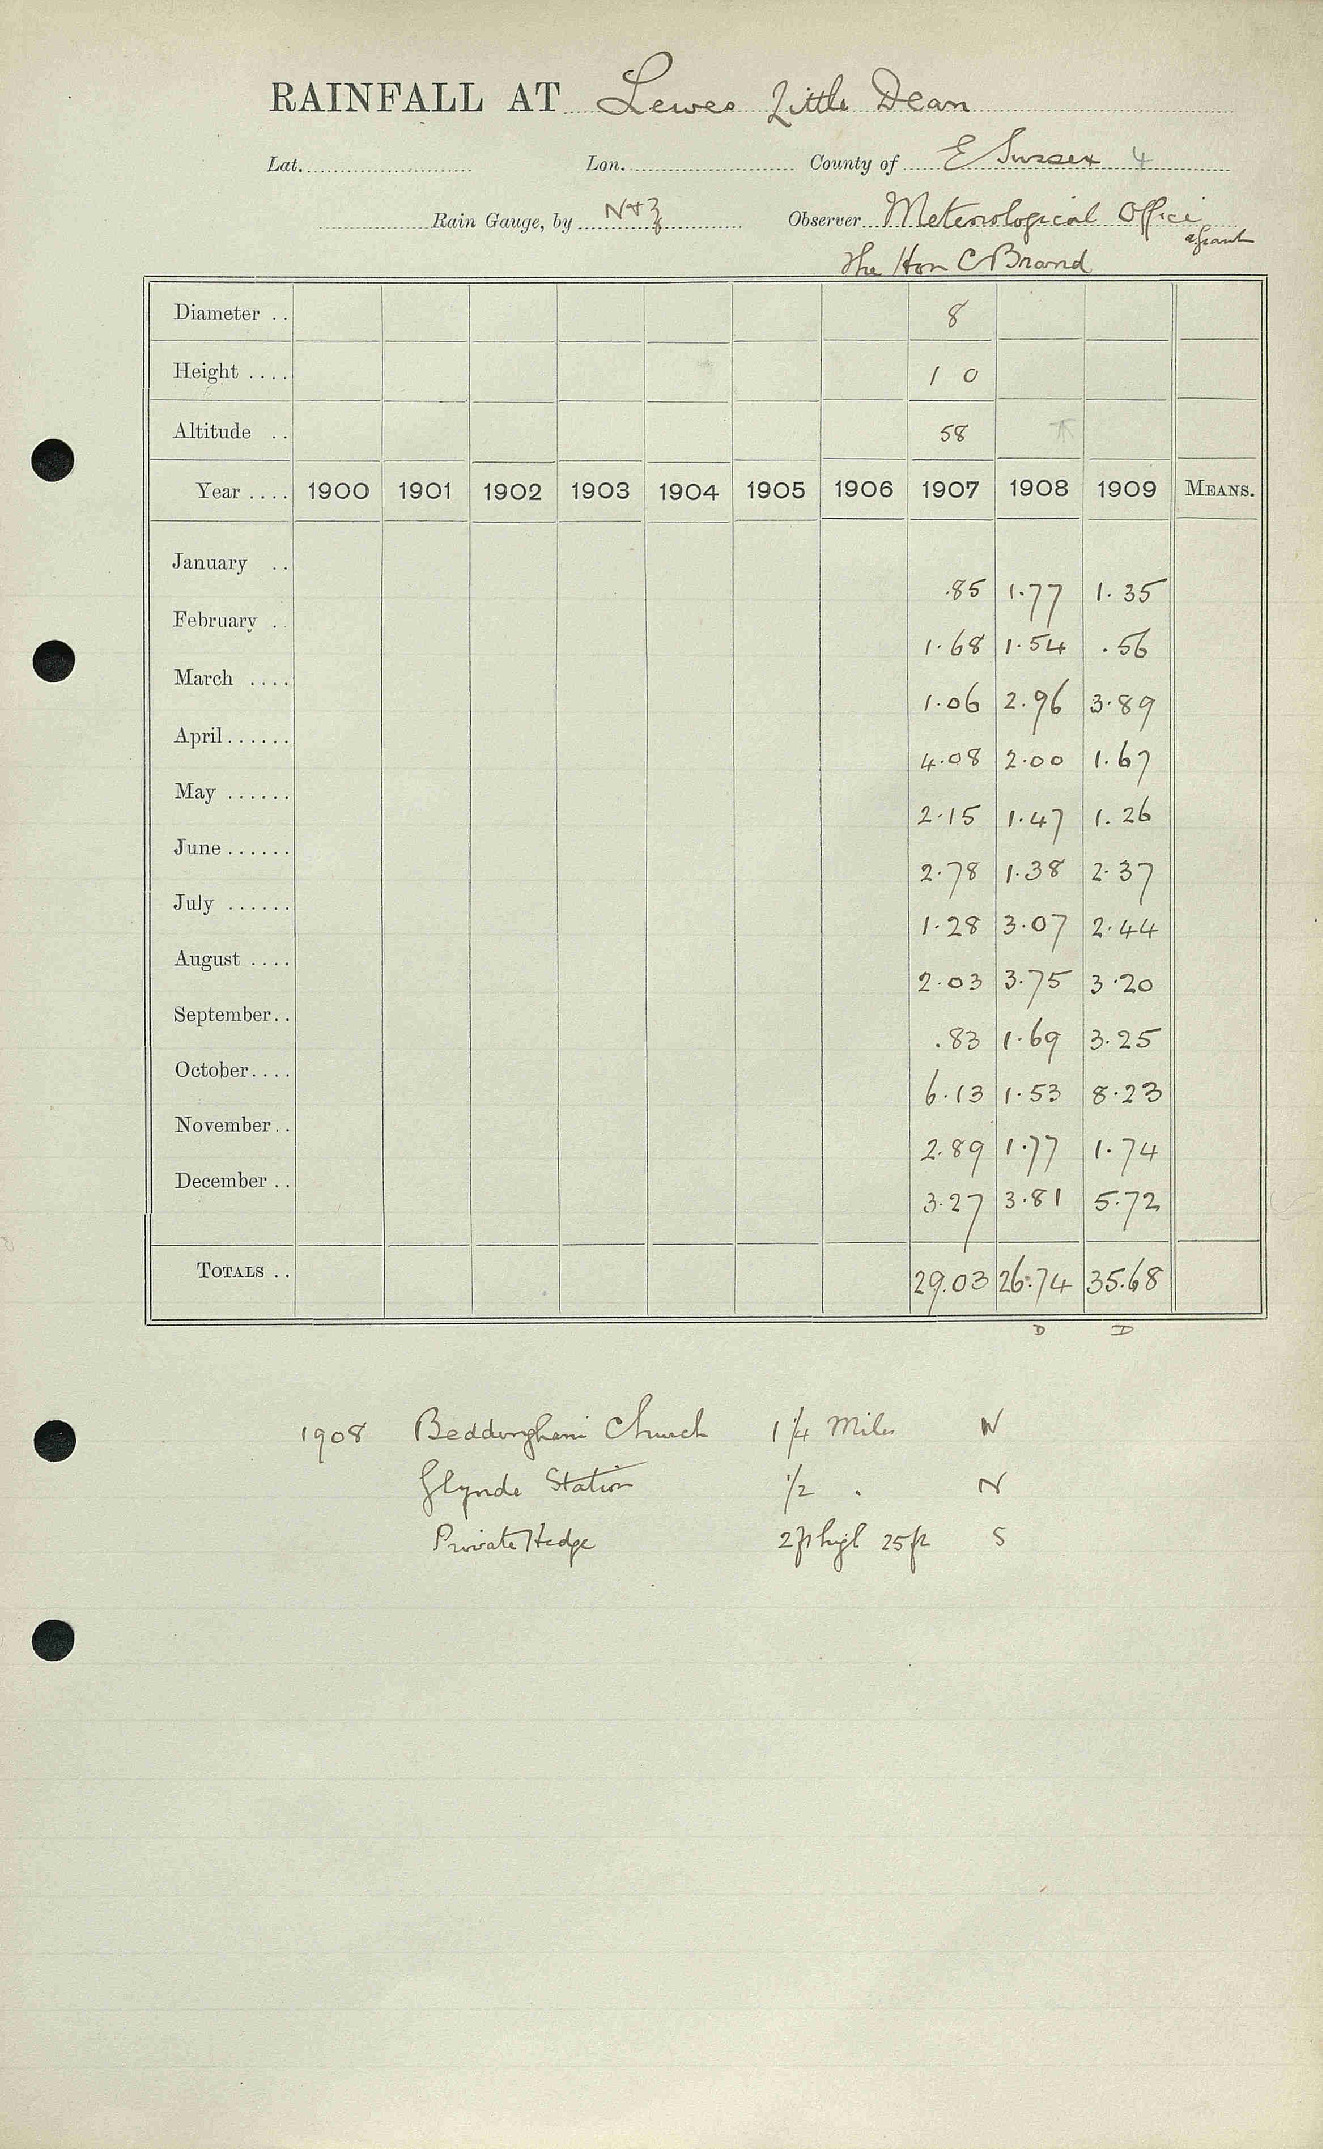 RAINFALL AT Lewes Little Dean
Lat. Lon. County of E Sussex 4
Rain Gauge, by N&Z Observer Meteorological Office
The Hon C Brand
Diameter .. 8
Height .... 1 0
Altitude .. 58
Year .... 1900 1901 1902 1903 1904 1905 1906 1907 1908 1909 MEANS.
January .. .85 1.77 1.35
February .. 1.68 1.54 .56
March .... 1.06 2.96 3.89
April...... 4.08 2.00 1.67
May ...... 2.15 1.47 1.26
June ...... 2.78 1.38 2.37
July ...... 1.28 3.07 2.44
August .... 2.03 3.75 3.20
September.. .83 1.69 3.25
October.... 6.13 1.53 8.23
November.. 2.89 1.77 1.74
December .. 3.27 3.81 5.72
TOTALS .. 29.03 26.74 35.68
D D
1908 Beddingham Church 1 1/4 Miles W
Glynde Station 1/2 . N
Private Hedge 2ft high 25ft S